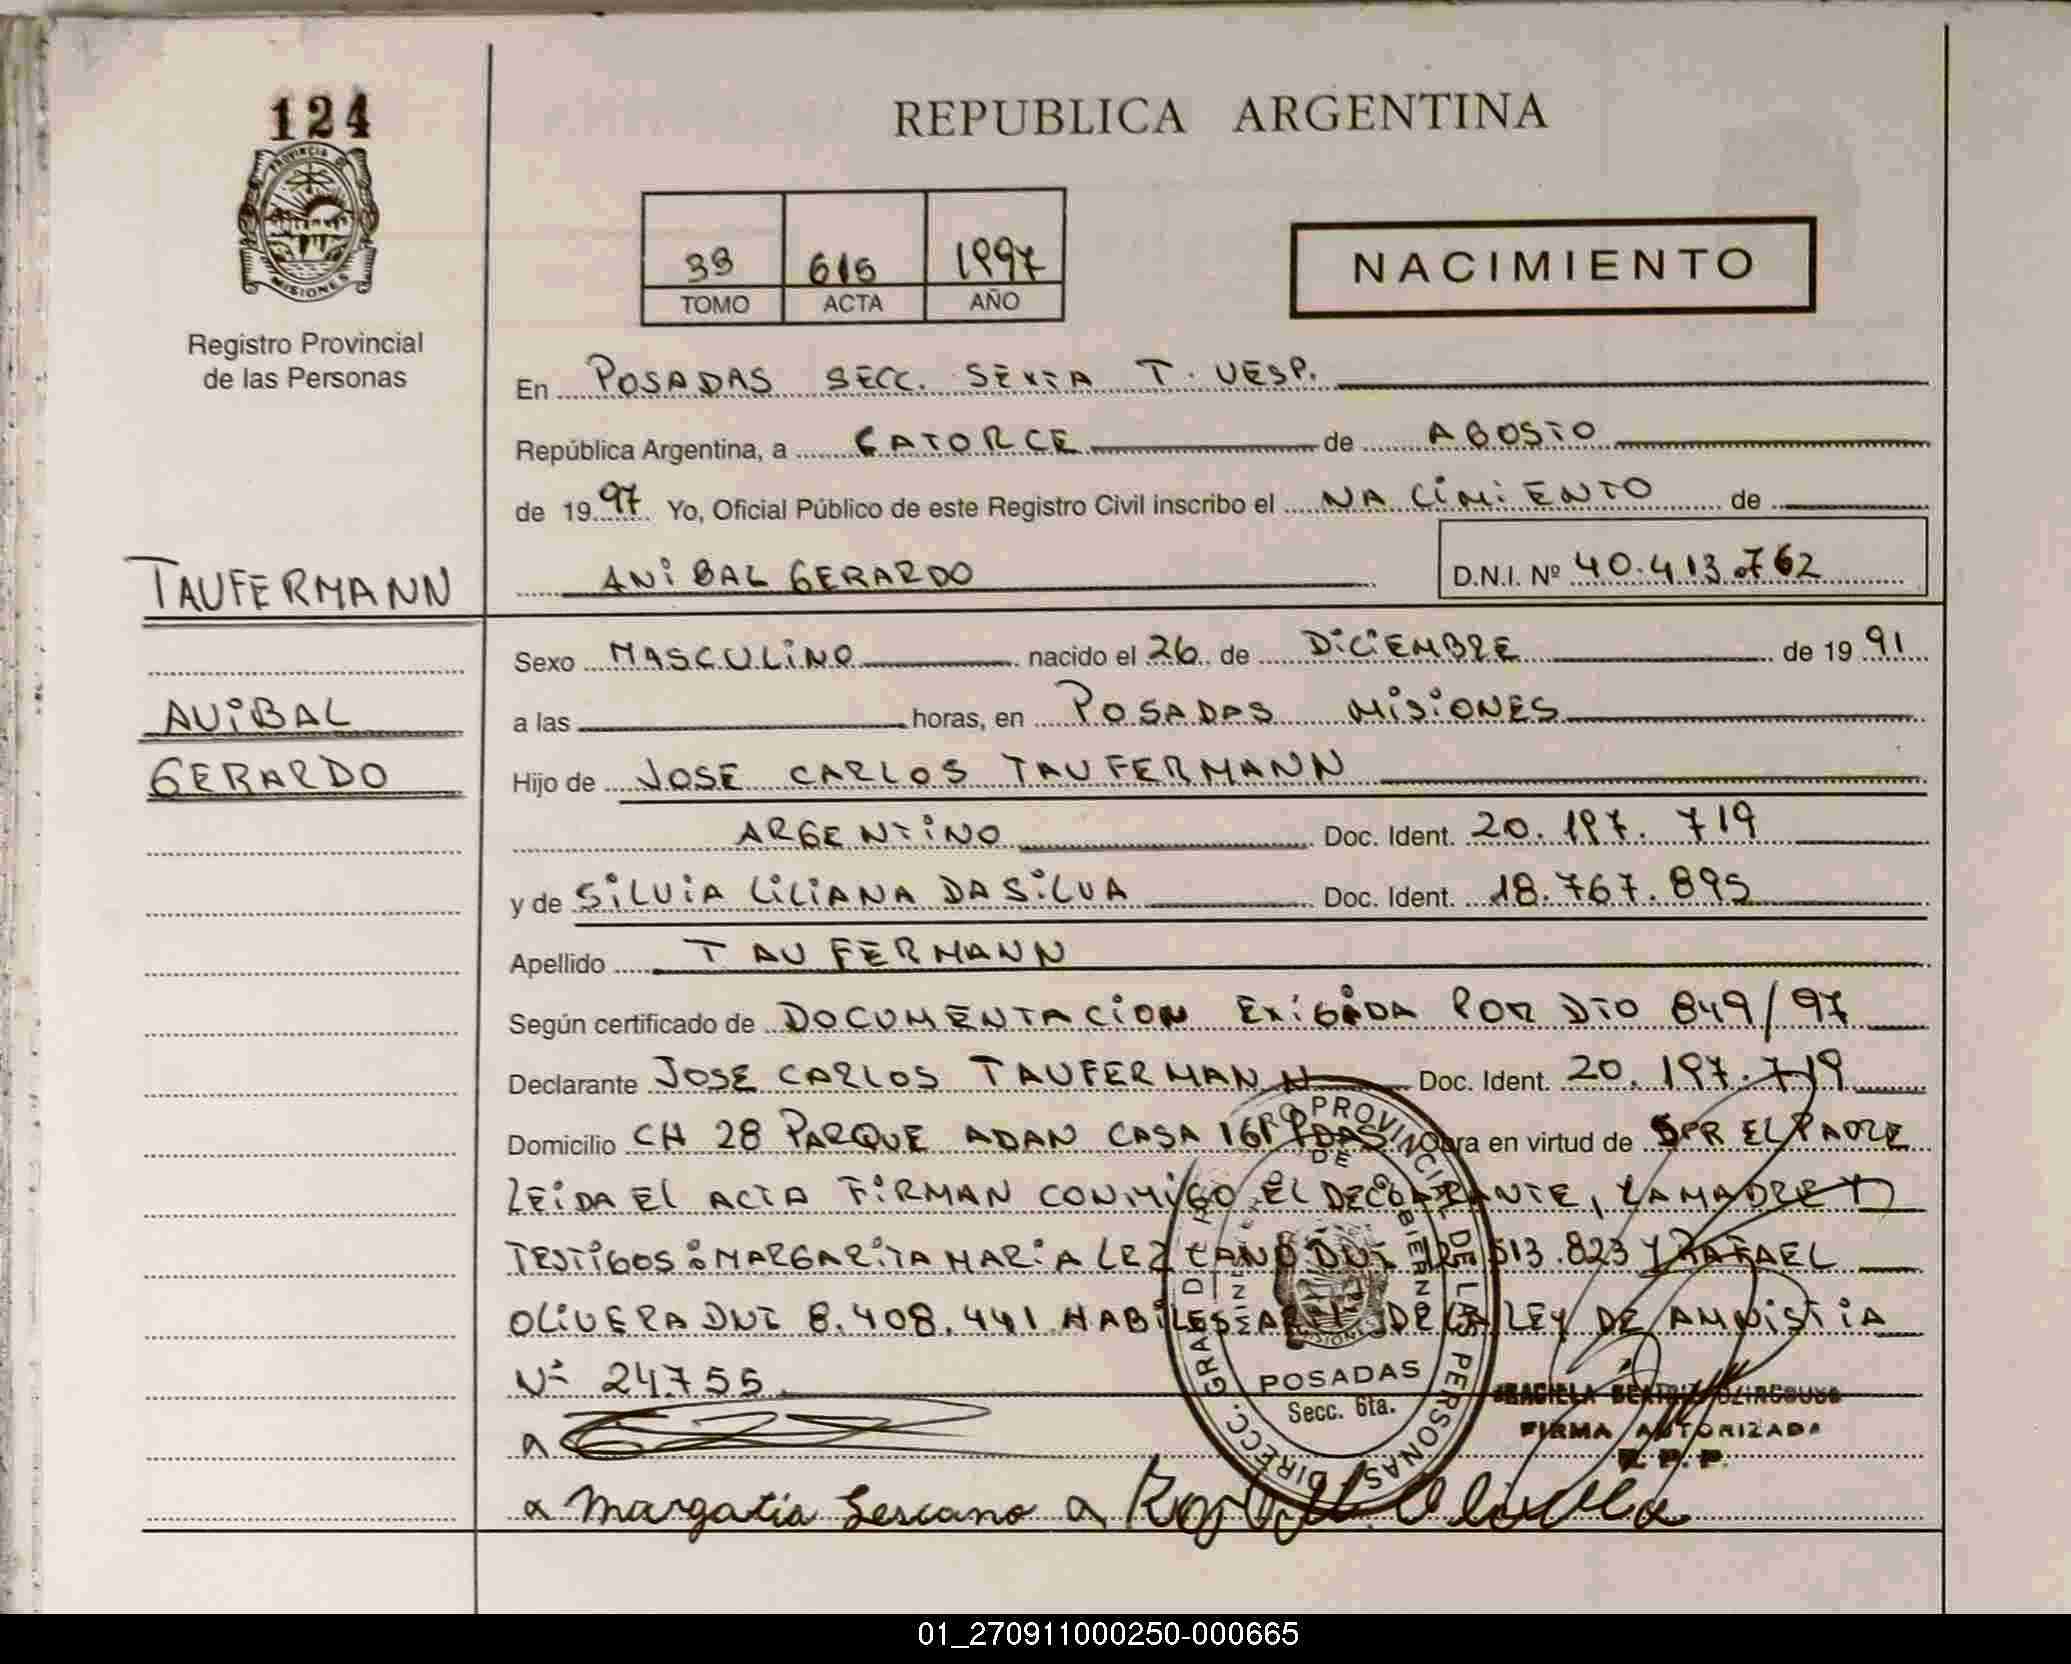 124
PROVINCIA DE
MISIONES
Registro Provincial
de las Personas
REPUBLICA ARGENTINA
39 615 1997
TOMO ACTA AÑO
NACIMIENTO
En POSADAS SECC. SEXTA T. VESP.
República Argentina, a CATORCE de AGOSTO
de 1997 Yo, Oficial Público de este Registro Civil inscribo el NACIMIENTO de
ANIBAL GERARDO D.N.I. Nº 40.413.762
TAUFERMANN
ANIBAL
GERARDO
Sexo MASCULINO nacido el 26 de DICIEMBRE de 1991
a las horas, en POSADAS MISIONES
Hijo de JOSE CARLOS TAUFERMANN
ARGENTINO Doc. Ident. 20.197.719
y de SILVIA LILIANA DA SILVA Doc. Ident. 18.767.895
Apellido TAUFERMANN
Según certificado de DOCUMENTACION EXIGIDA POR DTO 849/97
Declarante JOSE CARLOS TAUFERMANN Doc. Ident. 20.197.719
Domicilio CH 28 PARQUE ADAN CASA 161 PDAS Obra en virtud de SER EL PADRE
LEIDA EL ACTA FIRMAN CONMIGO EL DECLARANTE, LA MADRE Y
TESTIGOS: MARGARITA MARIA LEZCANO DNI 513.823 Y RAFAEL
OLIVERA DNI 8.408.441 HABILES DE LA LEY DE AMNISTIA
Nº 24755
DIRECC. GRAL DE REGISTRO PROVINCIAL DE LAS PERSONAS
POSADAS
Secc. 6ta.
GRACIELA BEATRIZ
FIRMA AUTORIZADA
R.P.P.
a
a Margarita Lescano a Rafael Olivera
01_270911000250-000665